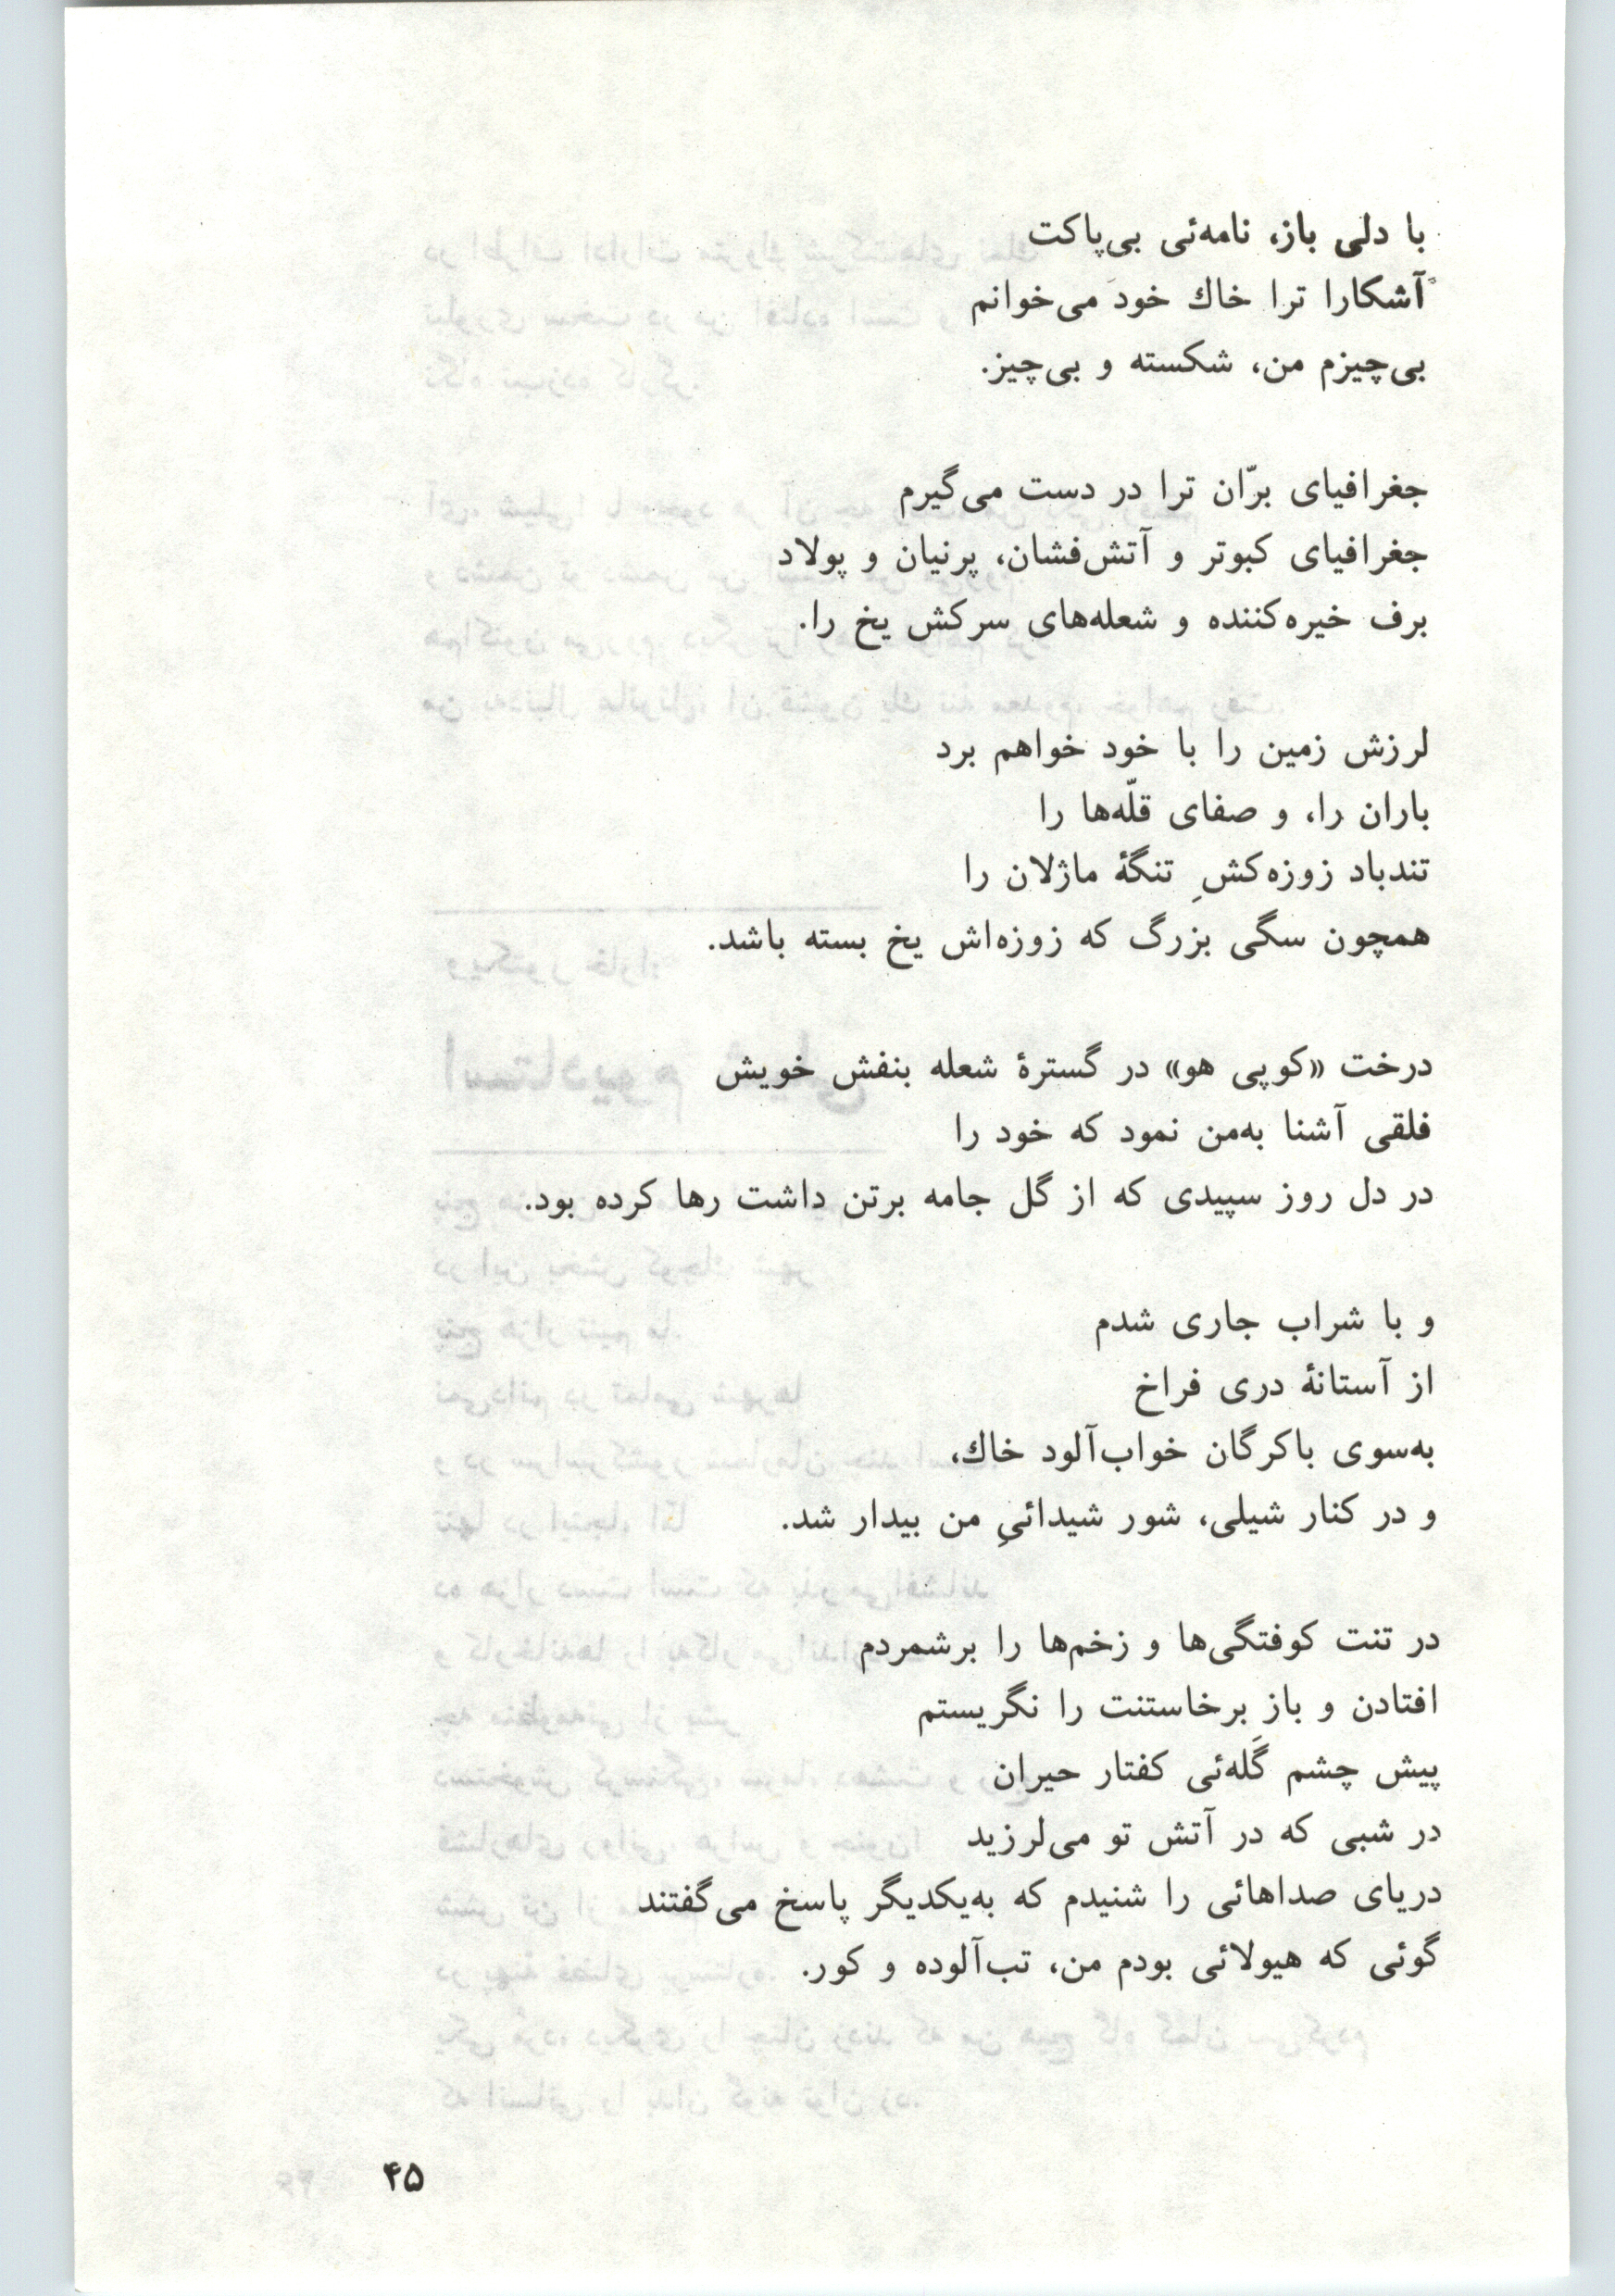 با دلی باز، نامه‌ئی بی‌پاکت
آشکارا ترا خاك خود می‌خوانم
بی‌چیزم من، شکسته و بی‌چیز.
جغرافیای برّان ترا در دست می‌گیرم
جغرافیای کبوتر و آتش‌فشان، پرنیان و پولاد
برف خیره‌کننده و شعله‌های سرکش یخ را.
لرزش زمین را با خود خواهم برد
باران را، و صفای قلّه‌ها را
تندباد زوزه‌کشِ تنگهٔ ماژلان را
همچون سگی بزرگ که زوزه‌اش یخ بسته باشد.
درخت «کوپی هو» در گسترهٔ شعله بنفش خویش
فلقی آشنا به‌من نمود که خود را
در دل روز سپیدی که از گل جامه برتن داشت رها کرده بود.
و با شراب جاری شدم
از آستانهٔ دری فراخ
به‌سوی باکرگان خواب‌آلود خاك،
و در کنار شیلی، شور شیدائیِ من بیدار شد.
در تنت کوفتگی‌ها و زخم‌ها را برشمردم
افتادن و باز برخاستنت را نگریستم
پیش چشم گَله‌ئی کفتار حیران
در شبی که در آتش تو می‌لرزید
دریای صداهائی را شنیدم که به‌یکدیگر پاسخ می‌گفتند
گوئی که هیولائی بودم من، تب‌آلوده و کور.
۴۵